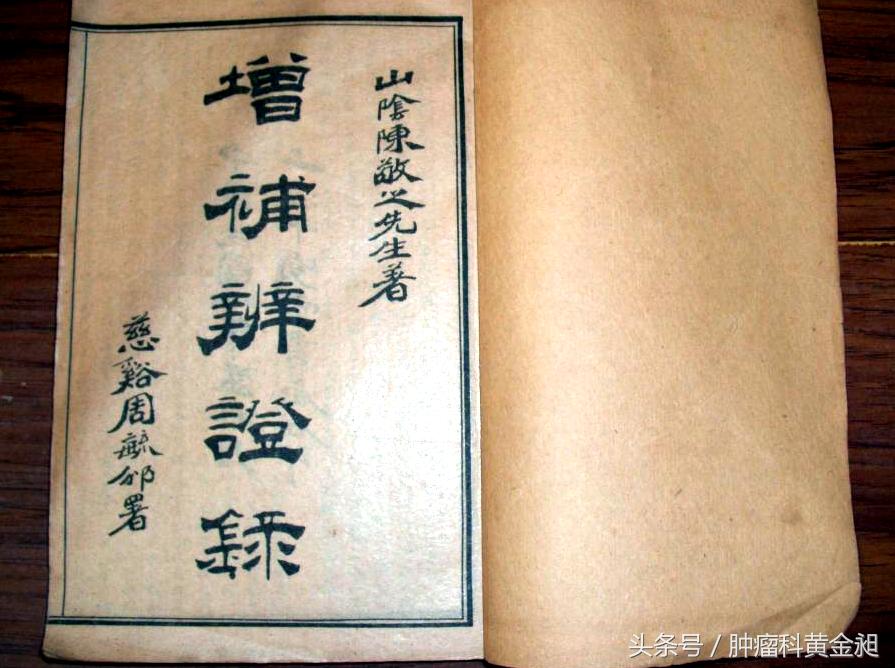 山陰陳敬之先生著
增補辨證録
慈谿周毓邠署
头条号 / 肿瘤科黄金昶